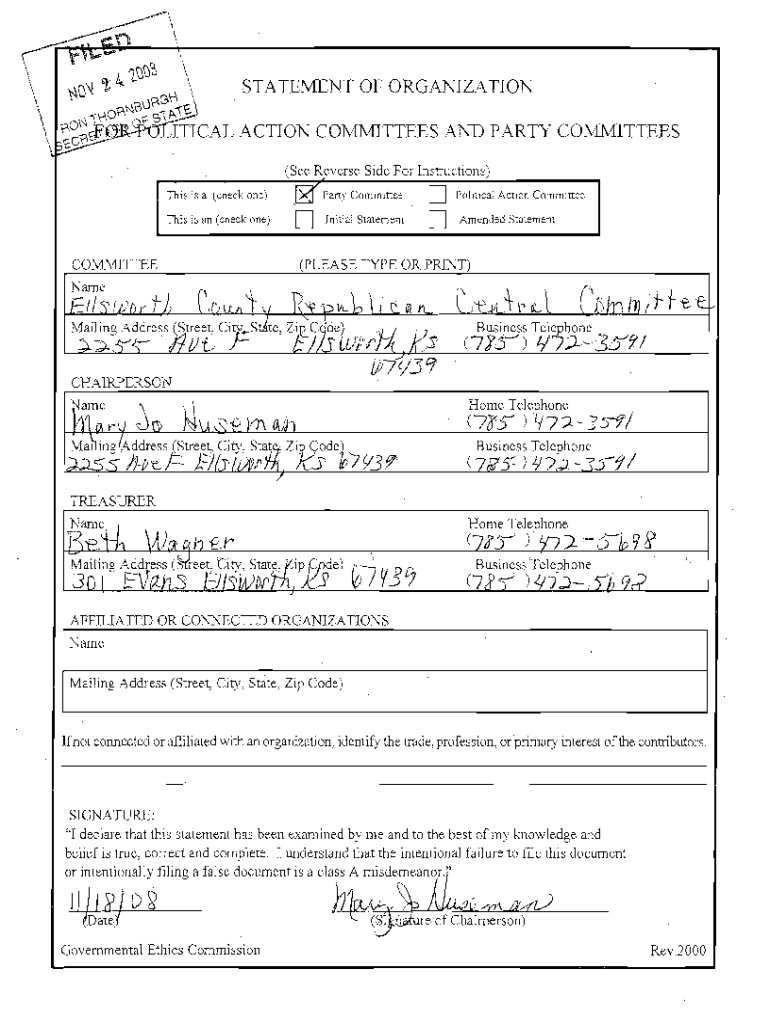 FILED
NOV 24 2008
RON THORNBURGH
SECRETARY OF STATE
STATEMENT OF ORGANIZATION
FOR POLITICAL ACTION COMMITTEES AND PARTY COMMITTEES
(See Reverse Side For Instructions)
This is a (check one) Party Committee Political Action Committee
This is an (check one) Initial Statement Amended Statement
COMMITTEE (PLEASE TYPE OR PRINT)
Name
Ellsworth County Republican Central Committee
Mailing Address (Street, City, State, Zip Code) Business Telephone
2255 Ave F Ellsworth, Ks (785) 472-3591
67439
CHAIRPERSON
Name Home Telephone
Mary Jo Huseman (785) 472-3591
Mailing Address (Street, City, State, Zip Code) Business Telephone
2255 Ave F Ellsworth, Ks 67439 (785) 472-3591
TREASURER
Name Home Telephone
Beth Wagner (785) 472-5698
Mailing Address (Street, City, State, Zip Code) Business Telephone
301 Evans Ellsworth, KS 67439 (785) 472-5698
AFFILIATED OR CONNECTED ORGANIZATIONS
Name
Mailing Address (Street, City, State, Zip Code)
If not connected or affiliated with an organization, identify the trade, profession, or primary interest of the contributors.
SIGNATURE:
"I declare that this statement has been examined by me and to the best of my knowledge and
belief is true, correct and complete. I understand that the intentional failure to file this document
or intentionally filing a false document is a class A misdemeanor."
11/18/08 Mary Jo Huseman
(Date) (Signature of Chairperson)
Governmental Ethics Commission Rev.2000